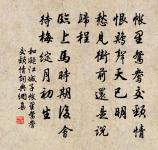 帳裏鴛鴦交頸情
恨雞聲天已明
愁見街前還是說
歸程
臨上馬時期後會
待梅綻月初生
和凝江城子帳裏鴛鴦
交頸情詞典網集